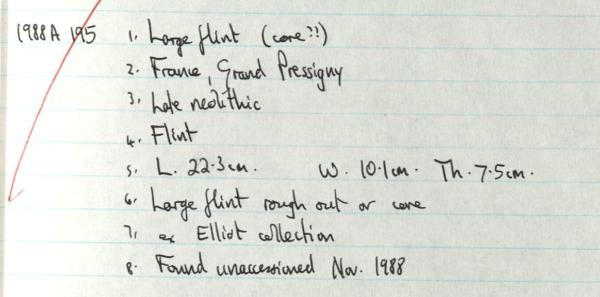 1988A 195 1. Large flint (core??)
2. France, Grand Pressigny
3. Late neolithic
4. Flint
5. L. 22.3cm. W. 10.1cm. Th. 7.5cm.
6. Large flint rough out or core
7. ex Elliot collection
8. Found unaccessioned Nov. 1988